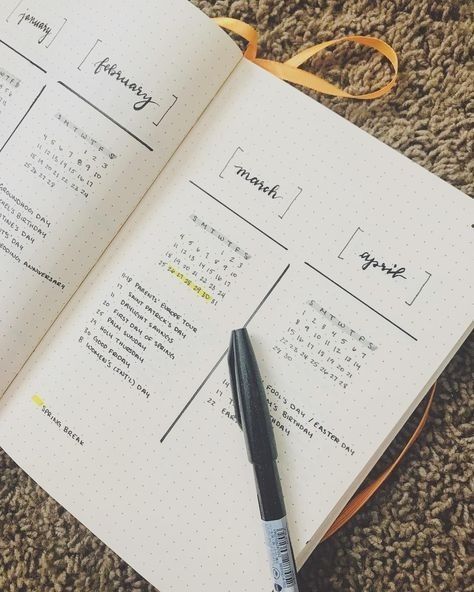 january
february
S M T W T F S
1 2 3
4 5 6 7 8 9 10
11 12 13 14 15 16 17
18 19 20 21 22 23 24
25 26 27 28
GROUNDHOG DAY
BIRTHDAY
DAY
DAY
WEDDING ANNIVERSARY
march
S M T W T F S
1 2 3
4 5 6 7 8 9 10
11 12 13 14 15 16 17
18 19 20 21 22 23 24
25 26 27 28 29 30 31
11-18 PARENTS' EUROPE TOUR
17 SAINT PATRICK'S DAY
11 DAYLIGHT SAVINGS
20 FIRST DAY OF SPRING
25 PALM SUNDAY
29 HOLY THURSDAY
30 GOOD FRIDAY
8 WOMEN'S (INT'L) DAY
SPRING BREAK
april
S M T W T F S
1 2 3 4 5 6 7
8 9 10 11 12 13 14
15 16 17 18 19 20 21
22 23 24 25 26 27 28
29 30
FOOL'S DAY / EASTER DAY
14 BIRTHDAY
17 BIRTHDAY
22 DAY